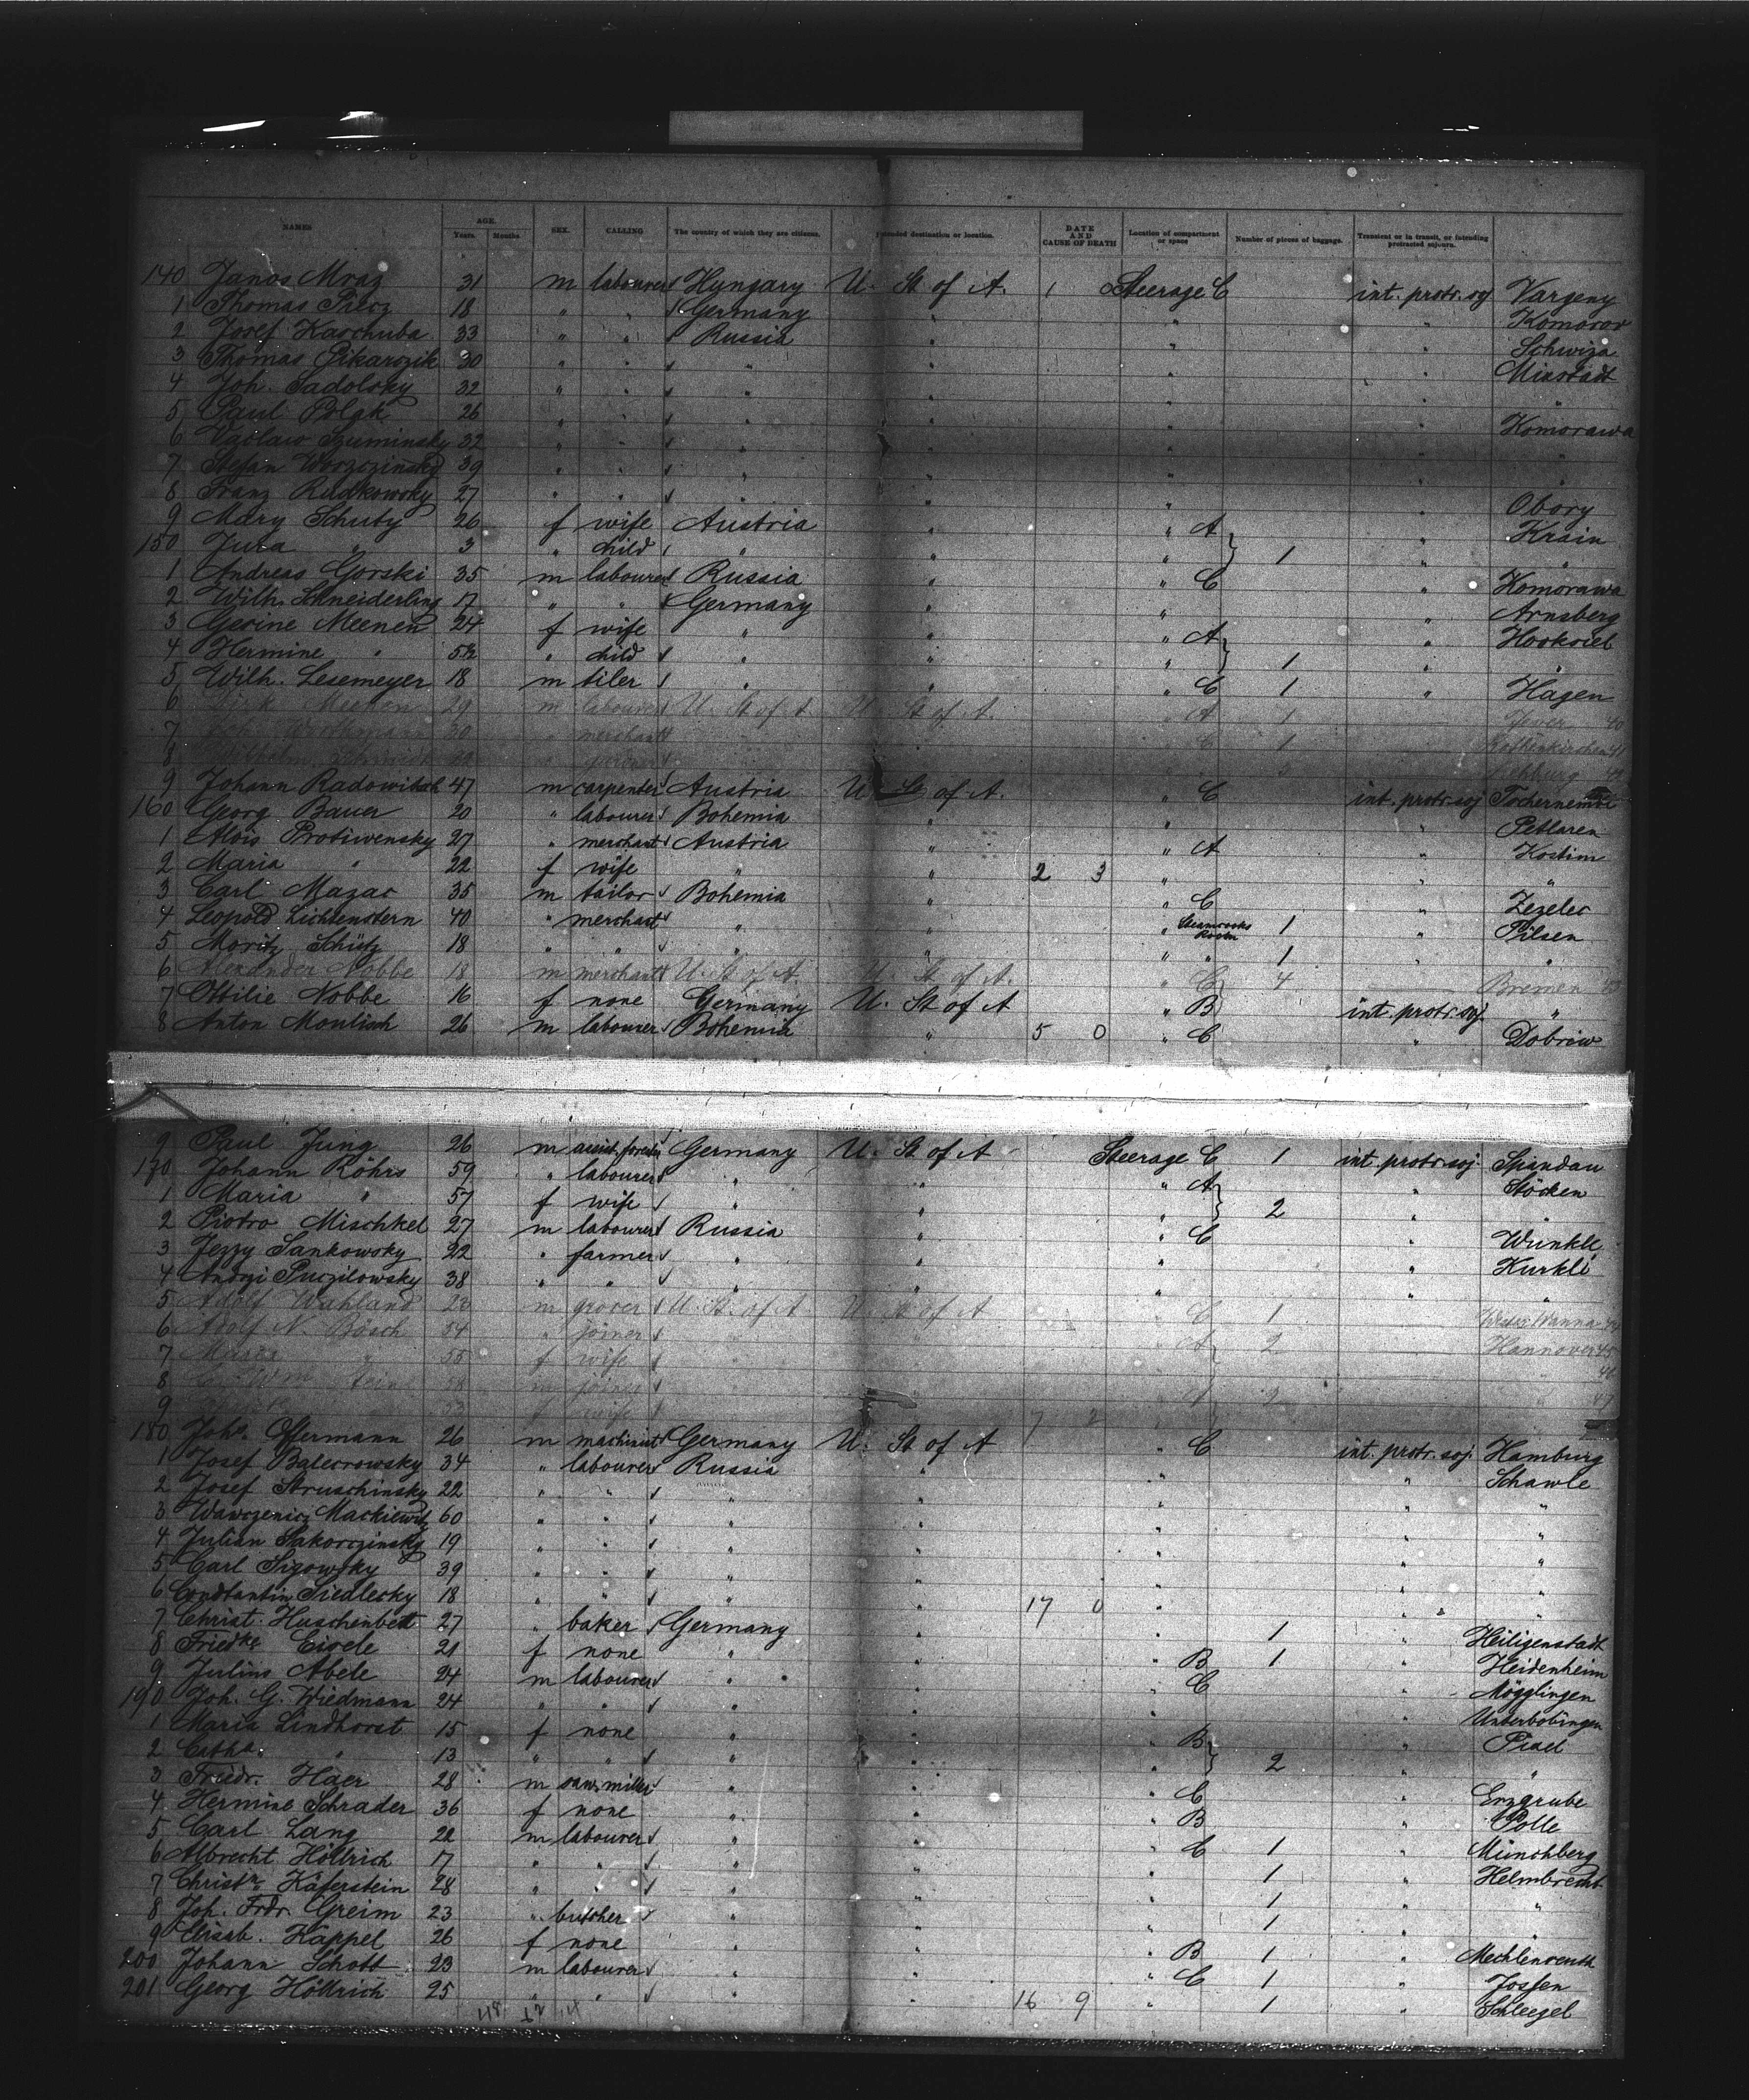 NAMES AGE. Years. Months SEX. CALLING The country of which they are citizens. Intended destination or location. DATE AND CAUSE OF DEATH Location of compartment or space Number of pieces of baggage. Transient or in transit, or intending protracted sojourn.
140 Janos Mraz 31 m labourer Hungary U. St of A. 1 Steerage C int. protr. soj Vargeny
1 Thomas Piecz 18 " " Germany " " " Komorov
2 Josef Kaschuba 33 " " Russia " " " Schwiza
3 Thomas Pikarczik 30 " " " " " " Miastadt
4 Joh. Sadolsky 32 " " " " " " "
5 Paul Polak 26 " " " " " " Komorawa
6 Vaclaw Szuminsky 32 " " " " " " "
7 Stefan Worzczinsky 39 " " " " " " "
8 Franz Rudkowsky 27 " " " " " " Obory
9 Mary Schuty 26 f wife Austria " " A " Krain
150 Jura " 3 " child " " " 1 " "
1 Andreas Gorski 35 m labourer Russia " " C " Komorawa
2 Wilh. Schneiderling 17 " " Germany " " " Arnsberg
3 Gesine Meenen 24 f wife " " " A " Hooksiel
4 Hermine " child " " " 1 " "
5 Wilh. Lesemeyer 18 m tiler " " " C 1 " Hagen
6 Dirk Meenen 29 m labourer U. St of A U. St of A. " A 1 Jever 40
7 30 " merchant " C 1 Rothenkirchen 41
8 Wilhelm
9 Johann Radowitsch 47 m carpenter Austria U. St of A. " C int. protr. soj Tschernembl
160 Georg Bauer 20 " labourer Bohemia " " " Petlaren
1 Alois Protiwensky 27 " merchant Austria " " A " Kostim
2 Maria " 22 f wife " " 2 3 " " "
3 Carl Mazac 35 m tailor Bohemia " " C " Zezelec
4 Leopold Lichtenstern 40 " merchant " " " Room 1 " Pilsen
5 Moritz Schütz 18 " " " " " " 1 " "
6 Alexander Nobbe 18 m merchant U. St of A. U. St of A. " C 4 Bremen 43
7 Ottilie Nobbe 16 f none Germany U. St of A " B int. protr. soj. "
8 Anton Moulisch 26 m labourer Bohemia " 5 0 " C " Dobriw
9 Paul Jung 26 m Germany U. St of A Steerage C 1 int. protr. soj Spandau
170 Johann Röhrs 59 " labourer " " " A " Stöcken
1 Maria " 57 f wife " " " 2 " "
2 Piotro Mischkel 27 m labourer Russia " " C " Wunkle
3 Jezzy Sankowsky 22 " farmer " " " " Kurkli
4 Andrzi Puczilowsky 38 " " " " " " "
5 Adolf Wahland 23 m grocer U. St. of A U. St of A " C 1 Wester Wanna 44
6 Adolf N. Bösch 54 " joiner " A 2 Hannover 45
7 Maria " 55 f wife 46
8 Wm m joiner " A 2 " 47
9 53 f wife 7 2
180 Johs. Offermann 26 m machinist Germany U. St of A " C int. protr. soj. Hamburg
1 Josef Balecrowsky 34 " labourer Russia " " " Schawle
2 Josef Struschinsky 22 " " " " " " "
3 Wawczenicz Mackiewitz 60 " " " " " " "
4 Julian Sakorczinsky 19 " " " " " " "
5 Carl Sigowsky 39 " " " " " " "
6 Constantin Siedlecky 18 " " " " 17 0 " " "
7 Christ. Huschenbett 27 " baker Germany " " 1 " Heiligenstadt
8 Friedke Eisele 21 f none " " " B 1 " Heidenheim
9 Julius Abele 24 m labourer " " " C " Mögglingen
190 Joh. G. Wiedmann 24 " " " " " " Unterbobingen
1 Maria Lindhorst 15 f none " " " B " Piael
2 Catha. " 13 " " " " " 2 " "
3 Friedr. Haer 28 m saw-miller " " " C " Erzgrube
4 Hermine Schrader 36 f none " " " B " Polle
5 Carl Lang 22 m labourer " " " C 1 " Münchberg
6 Albrecht Höllrich 17 " " " " " 1 " Helmbrecht
7 Christn. Käferstein 28 " " " " " 1 " "
8 Joh. Frdr. Greim 23 " butcher " " " 1 "
9 Elisab. Kappel 26 f none " " " B 1 " Mechlenreuth
200 Johann Schott 23 m labourer " " " C 1 " Jossen
201 Georg Höllrich 25 " " " " 16 9 " 1 " Schlegel
48 12 14